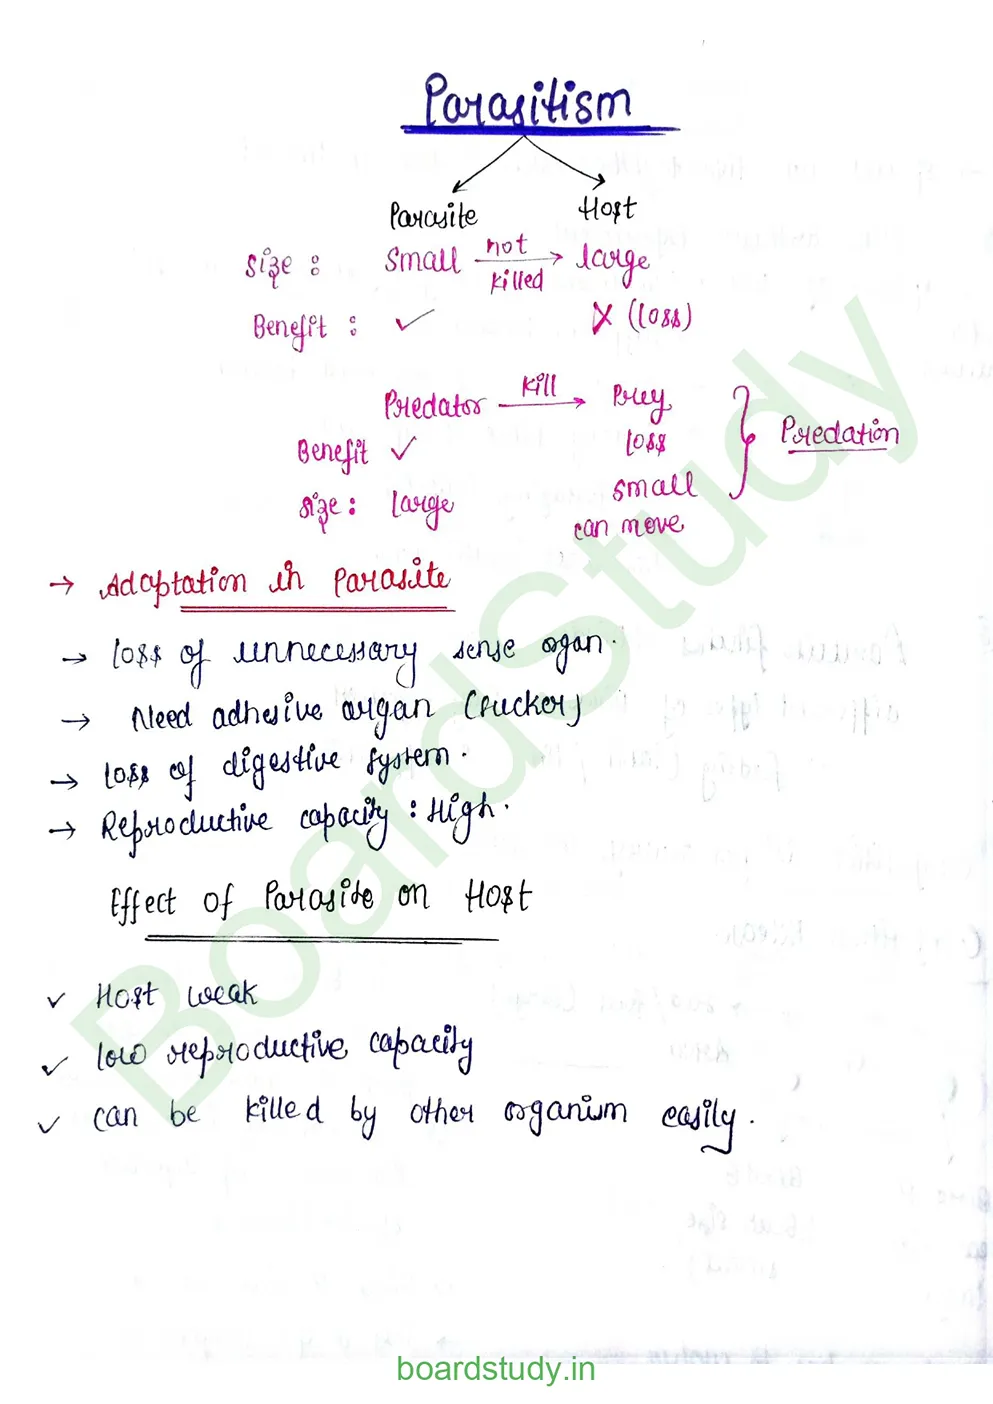 Parasitism
Parasite Host
Size : Small not killed → large
Benefit : ✓ X (loss)
Predator kill → Prey
Benefit ✓ loss
Size : large small
can move
Predation
→ Adaptation in Parasite
→ loss of unnecessary sense ogan.
→ Need adhesive organ (sucker)
→ loss of digestive system.
→ Reproductive capacity : High.
Effect of Parasite on Host
✓ Host weak
✓ low reproductive capacity
✓ can be killed by other organism easily.
BoardStudy
boardstudy.in